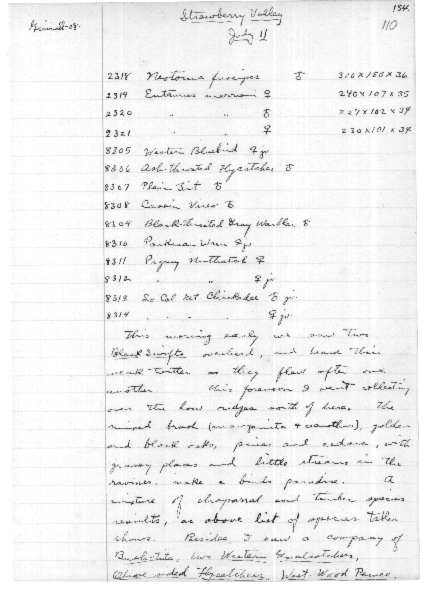 Strawberry Valley 154.
Grinnell-08. July 11 110
2318 Neotoma fuscipes ♂ 310 x 150 x 36
2319 Eutamias merriami ♀ 240 x 107 x 35
2320 " " ♂ 227 x 102 x 34
2321 " ♀ 230 x 101 x 34
8305 Western Bluebird ♀ jv
8306 Ash-throated Flycatcher ♂
8307 Plain Tit ♂
8308 Cassin Vireo ♂
8309 Black-throated Gray Warbler ♂
8310 Parkman Wren ♀ jv
8311 Pygmy Nuthatch ♀
8312 " " ♀ jv
8313 So Cal Mt Chickadee ♂ jv
8314 " " " " ♀ jv
This morning early we saw two
Black Swifts overhead, and heard their
weak twitter as they flew after one
another. This forenoon I went collecting
over the low ridges north of here. The
mixed brush (manzanita + ceanothus), golden
and black oaks, pines and cedars, with
grassy places and little streams in the
ravines, make a birds paradise. A
mixture of chaparral and timber species
results, as above list of species taken
shows. Besides, I saw a company of
Bush-tits, two Western Gnatcatchers,
Olive-sided Flycatchers, West. Wood Pewee,